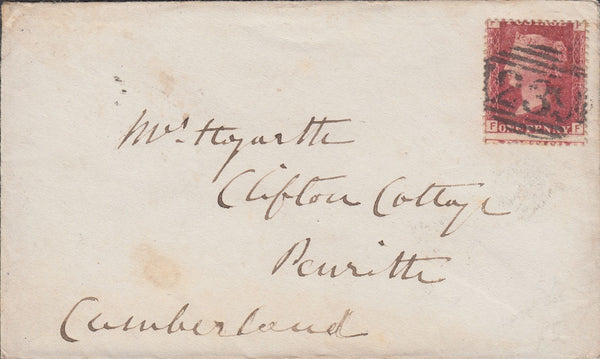 F F
235
ONE PENNY
F F
Mrs Hogarth
Clifton Cottage
Penrith
Cumberland